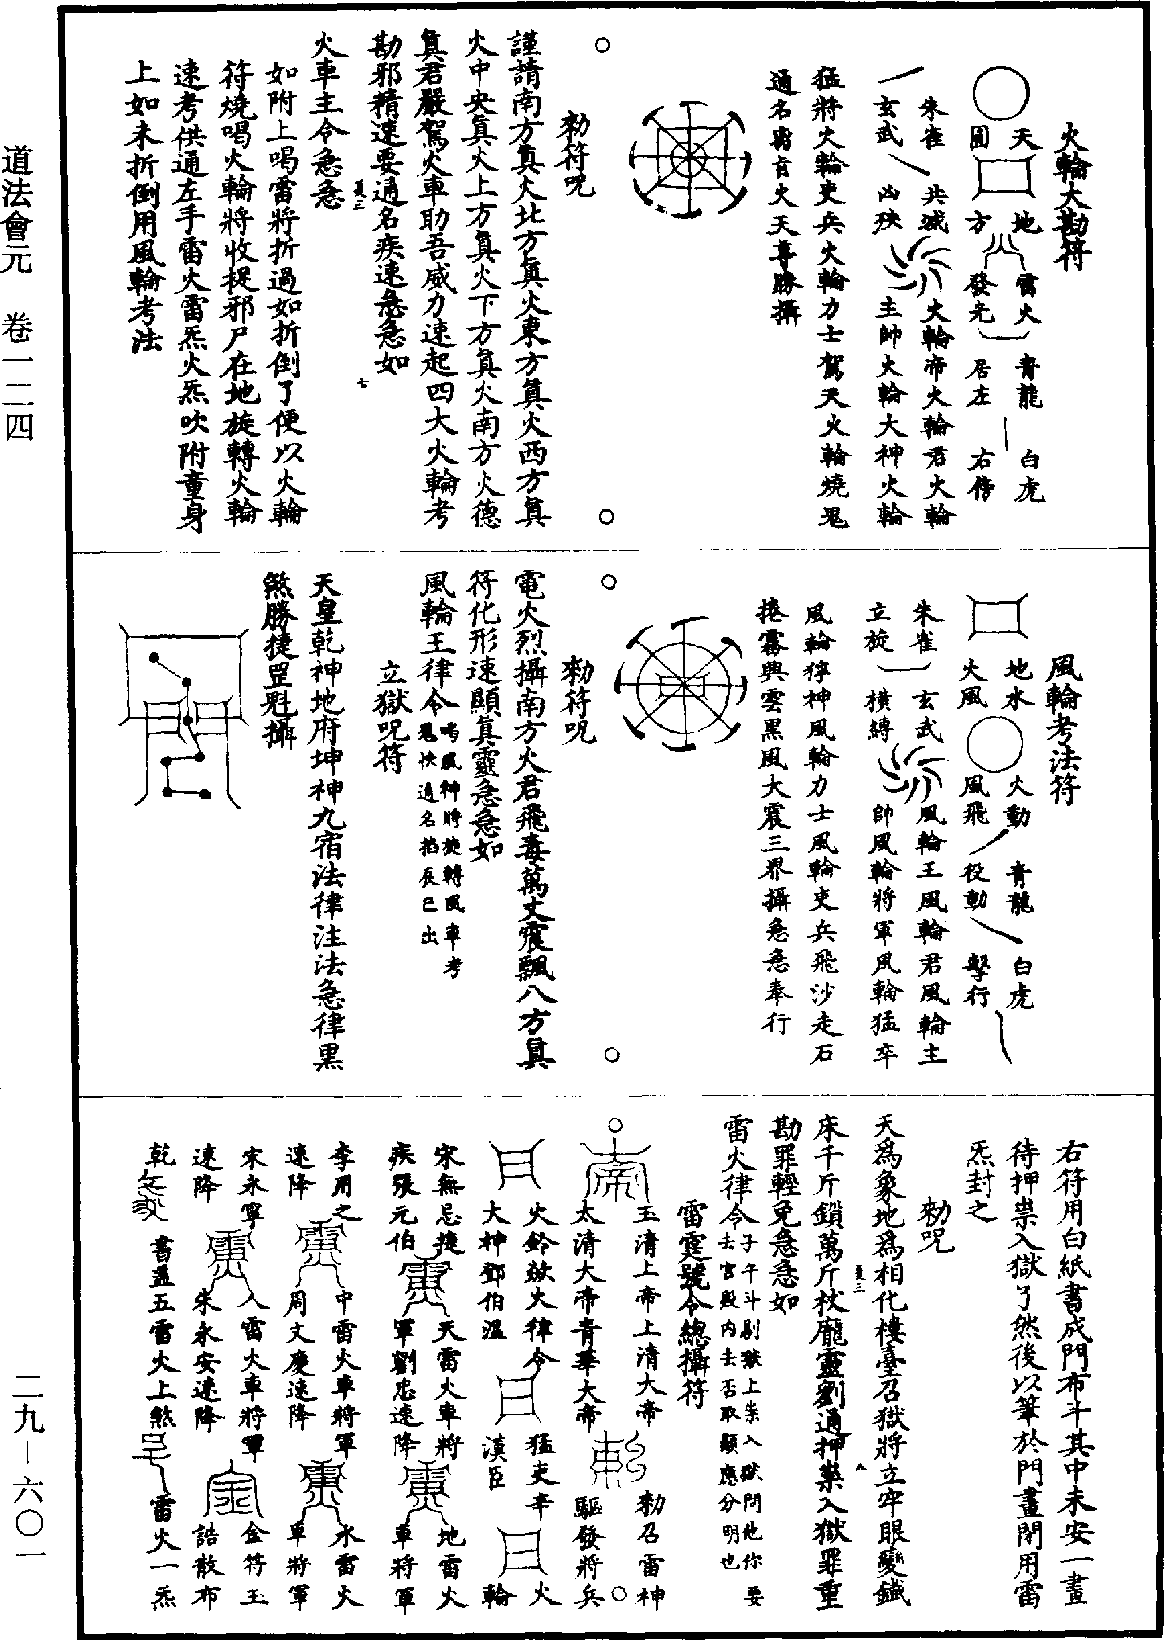 道法會元 卷一二四
二九—六〇一
火輪大勘符
天圓
地方
雷火發光
青龍居左
白虎右傍
朱雀玄武
共滅凶殃
火輪帝火輪君火輪
主帥火輪大神火輪
猛將火輪吏兵火輪力士駕天火輪燒鬼
通名翦盲火天尊勝攝
勑符呪
謹請南方真火北方真火東方真火西方真
火中央真火上方真火下方真火南方火德
真君嚴駕火車助吾威力速起四大火輪考
勘邪精速要通名疾速急急如
火車主令急急
如附上喝雷將折過如折倒了便以火輪
符燒喝火輪將收捉邪尸在地旋轉火輪
速考供通左手雷火雷炁火炁吹附童身
上如未折倒用風輪考法
風輪考法符
地水火風
火動風飛
青龍役動
白虎擊行
朱雀立旋
玄武橫縛
風輪王風輪君風輪主
帥風輪將軍風輪猛卒
風輪獰神風輪力士風輪吏兵飛沙走石
捲霧興雲黑風大震三界攝急急奉行
勑符呪
電火烈攝南方火君飛毒萬丈震飄八方真
符化形速顯真靈急急如
風輪王律令
喝風神將旋轉風車考
鬼快通名掐辰巳出
立獄呪符
天皇乾神地府坤神九宿法律注法急律黑
煞勝捷罡魁攝
右符用白紙書成門布斗其中未安一畫
待押祟入獄了然後以筆於門畫閉用雷
炁封之
勑呪
天為象地為相化樓臺召獄將立牢眼變鐵
床千斤鎖萬斤杖龐靈劉通押祟入獄罪重
勘罪輕免急急如
雷火律令
子午斗剔獄上祟入獄問他你要
去宮殿內去否取顯應分明也
雷霆號令總攝符
玉清上帝上清大帝
太清大帝青華大帝
勑召雷神
驅發將兵
火鈴歘火律令
大神鄧伯溫
猛吏辛
漢臣
火
輪
宋無忌捷
疾張元伯
天雷火車將
軍劉忠速降
地雷火
車將軍
李用之
速降
中雷火車將軍
周文慶速降
水雷火
車將軍
宋永寧
速降
人雷火車將軍
朱永安速降
金符玉
誥散布
乾
書畫五雷火上煞
雷火一炁